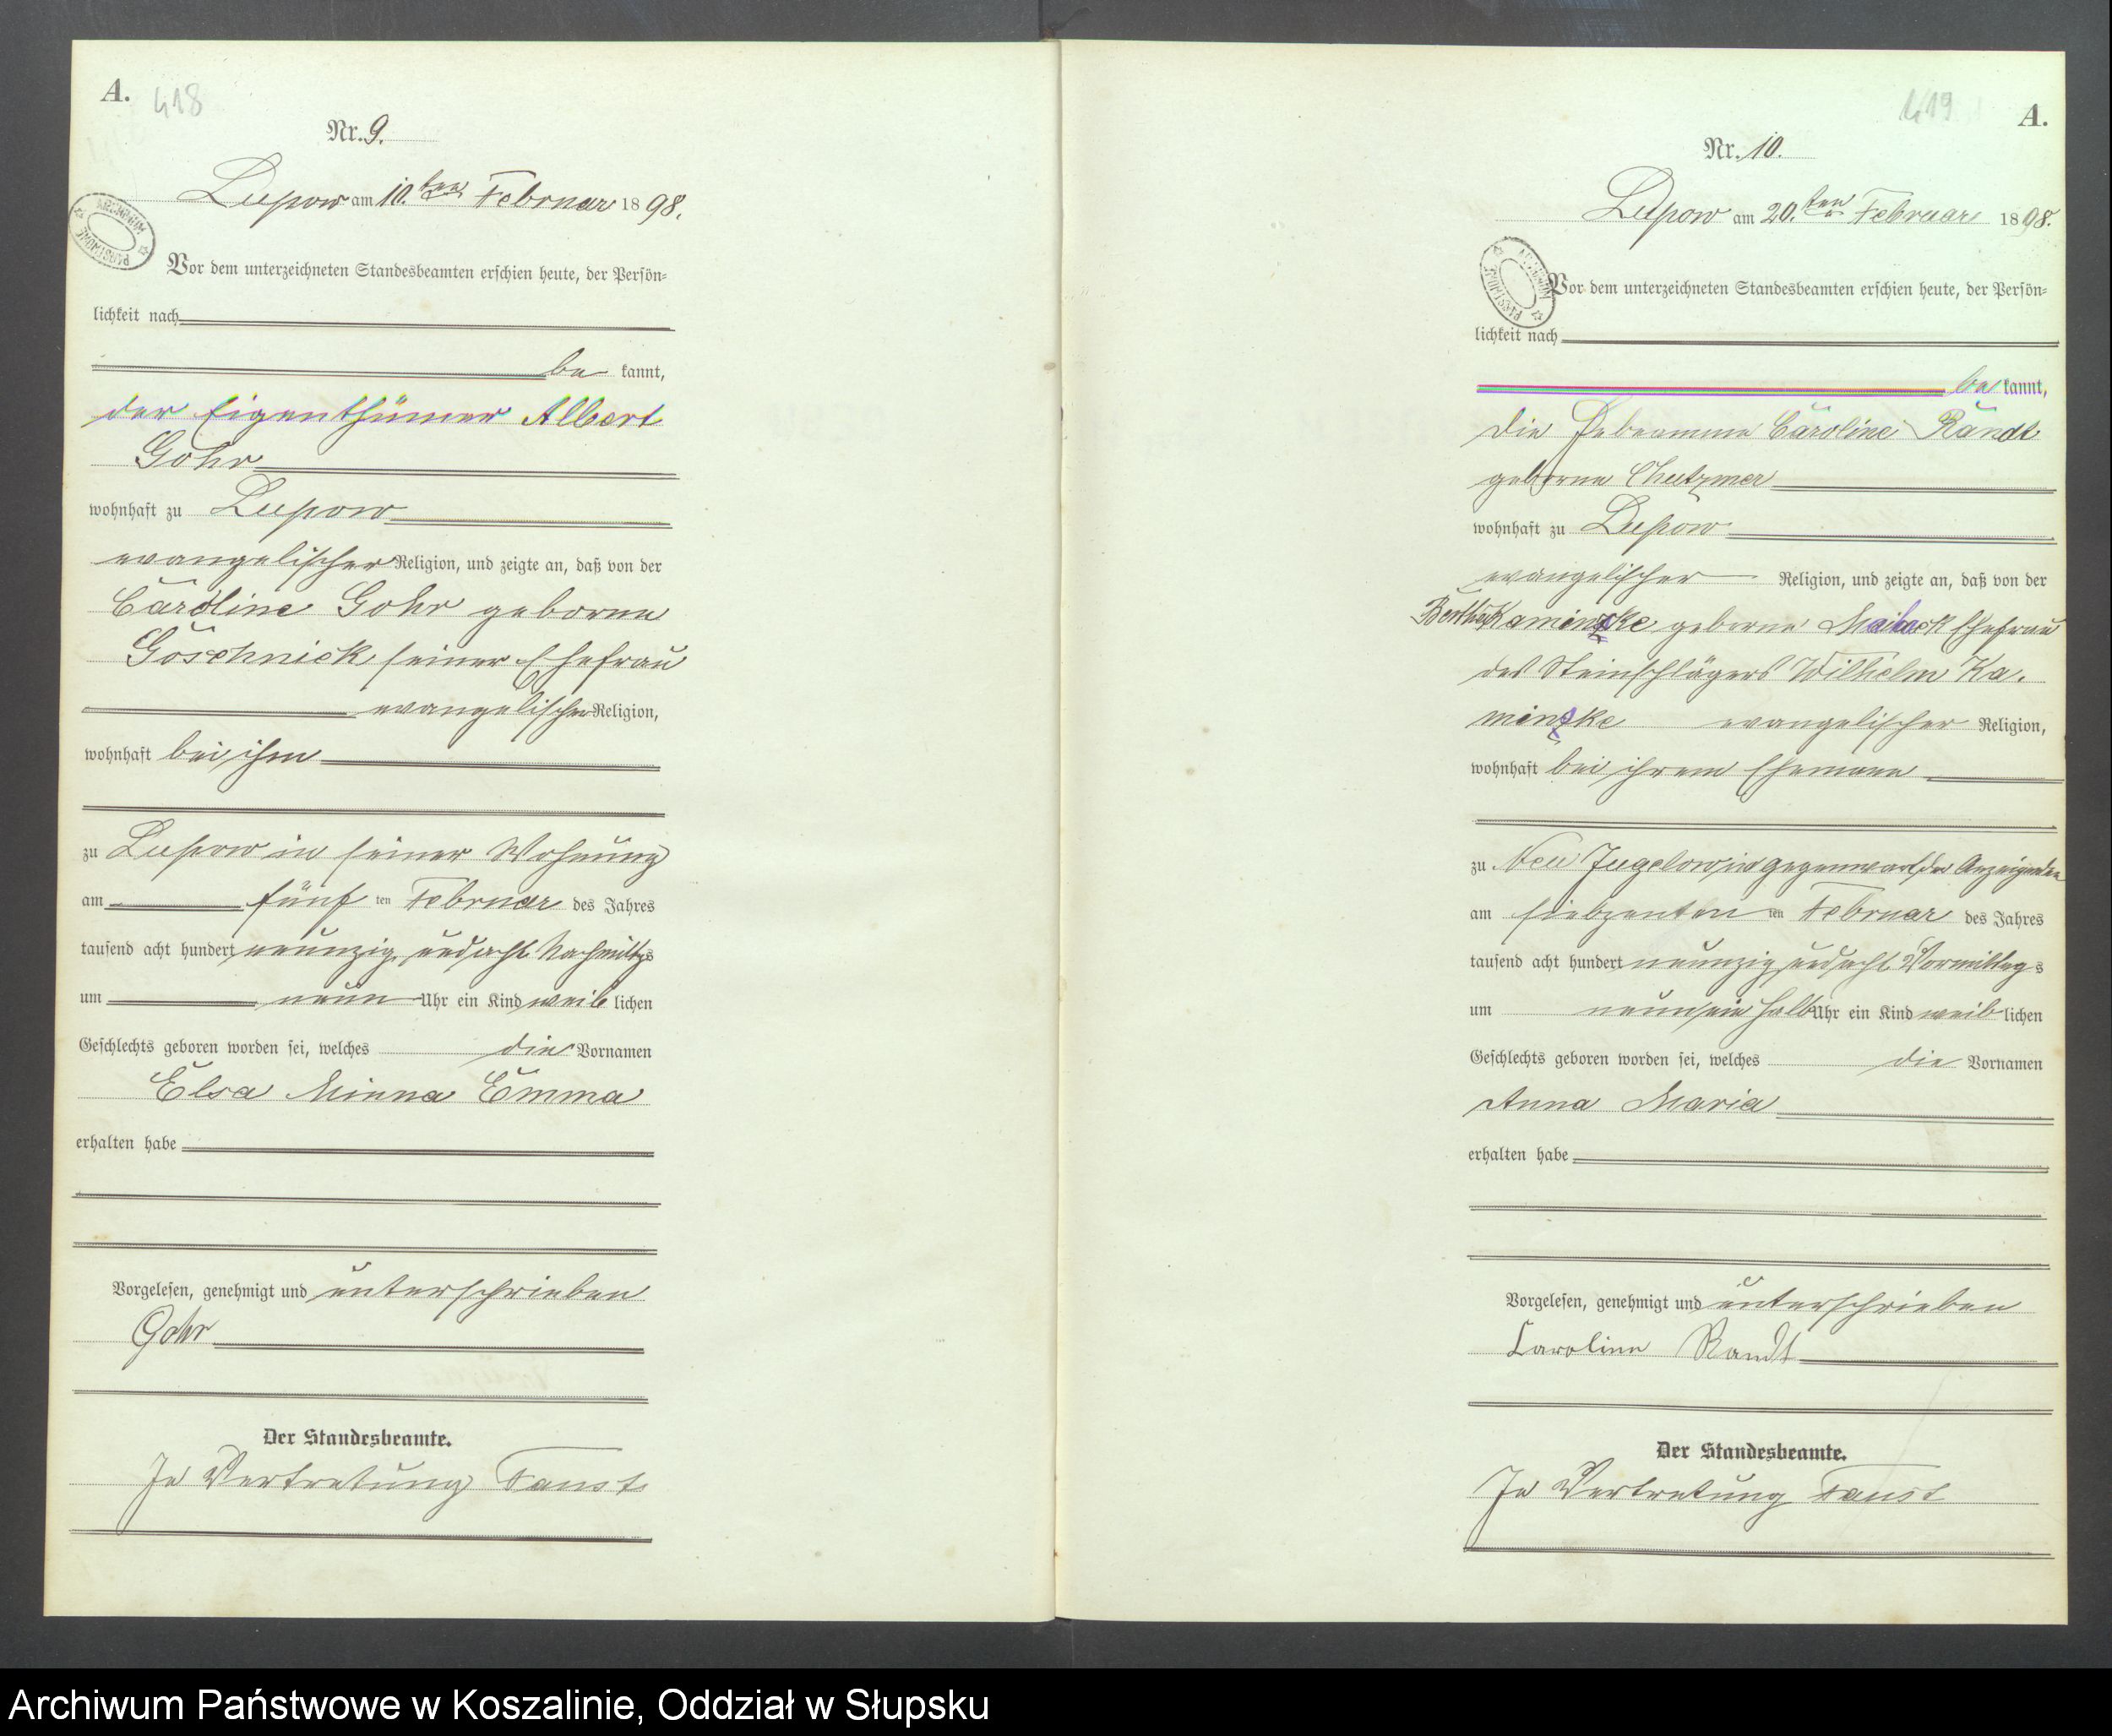 A. 418
Nr. 9.
Lupow am 10.ten Februar 1898.
ARCHIWUM PAŃSTWOWE
Vor dem unterzeichneten Standesbeamten erschien heute, der Persön-
lichkeit nach
be kannt,
der Eigenthümer Albert
Gohr
wohnhaft zu Lupow
evangelischer Religion, und zeigte an, daß von der
Caroline Gohr geborne
Göschnick seiner Ehefrau
evangelischer Religion,
wohnhaft bei ihm
zu Lupow in seiner Wohnung
am fünf ten Februar des Jahres
tausend acht hundert neunzig und acht Nachmittags
um neun Uhr ein Kind weib lichen
Geschlechts geboren worden sei, welches die Vornamen
Elsa Minna Emma
erhalten habe
Vorgelesen, genehmigt und unterschrieben
Gohr
Der Standesbeamte.
In Vertretung Faust
419 A.
Nr. 10.
Lupow am 20.ten Februar 1898.
ARCHIWUM PAŃSTWOWE
Vor dem unterzeichneten Standesbeamten erschien heute, der Persön-
lichkeit nach
be kannt,
die Hebeamme Caroline Randt
geborne
wohnhaft zu Lupow
evangelischer Religion, und zeigte an, daß von der
Bertha Kaminske geborne Ehefrau
des Steinschlägers Wilhelm Ka-
minske evangelischer Religion,
wohnhaft bei ihrem Ehemann
zu Neu Jugelow in Gegenwart der Anzeigenden
am siebzenten ten Februar des Jahres
tausend acht hundert neunzig und acht Vormittags
um neun ein halb Uhr ein Kind weib lichen
Geschlechts geboren worden sei, welches die Vornamen
Anna Maria
erhalten habe
Vorgelesen, genehmigt und unterschrieben
Caroline Randt
Der Standesbeamte.
In Vertretung Faust
Archiwum Państwowe w Koszalinie, Oddział w Słupsku